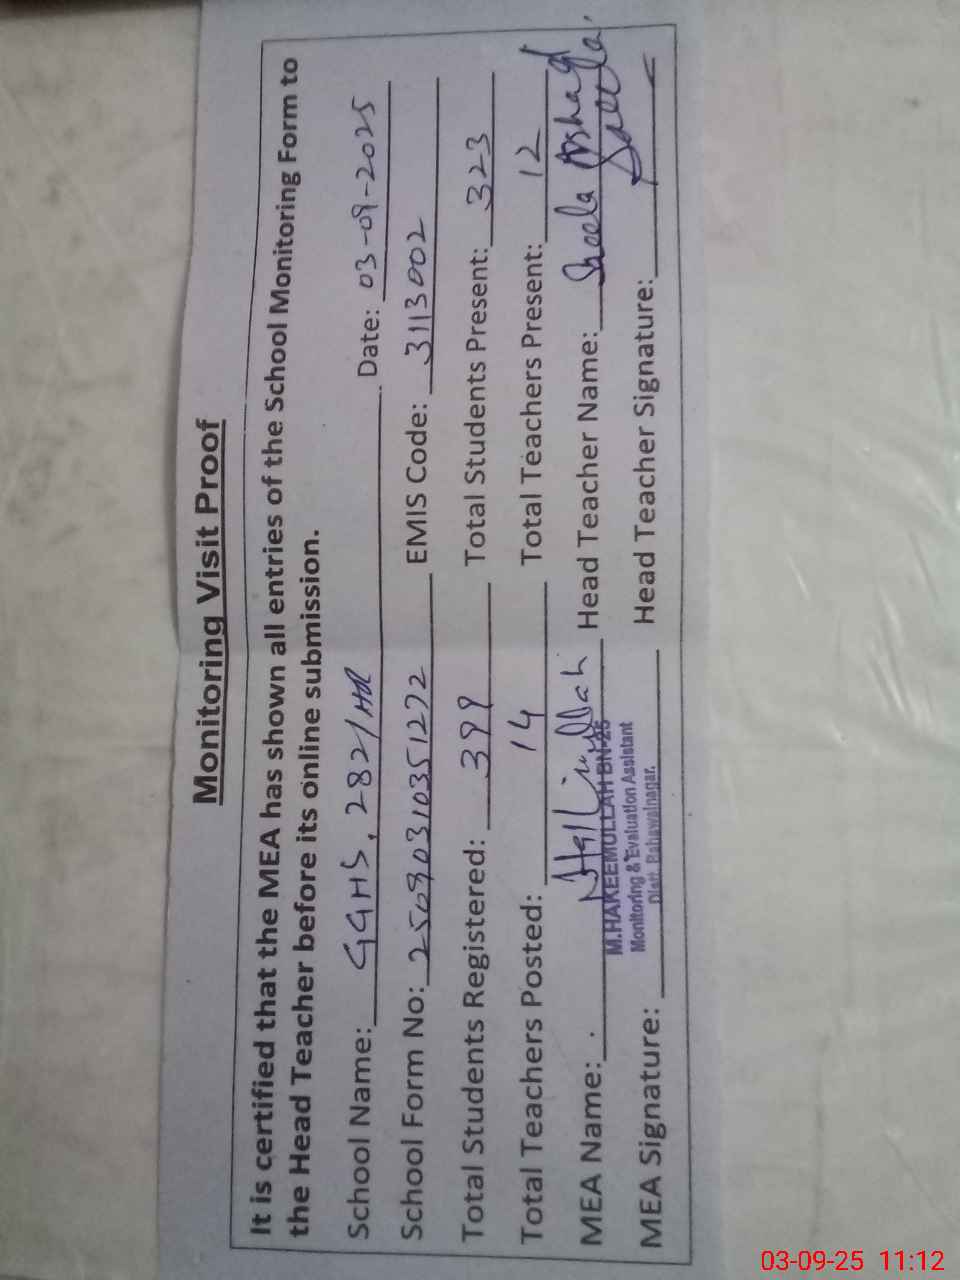 Monitoring Visit Proof
It is certified that the MEA has shown all entries of the School Monitoring Form to
the Head Teacher before its online submission.
School Name: GGHS, 282/HR Date: 03-09-2025
School Form No: 25090310351272 EMIS Code: 31130002
Total Students Registered: 399 Total Students Present: 323
Total Teachers Posted: 14 Total Teachers Present: 12
MEA Name: Head Teacher Name: Sheela Arshad
M.HAKEEMULLAH BN-26
Monitoring & Evaluation Assistant
Distt. Bahawalnagar.
MEA Signature: Head Teacher Signature:
03-09-25 11:12